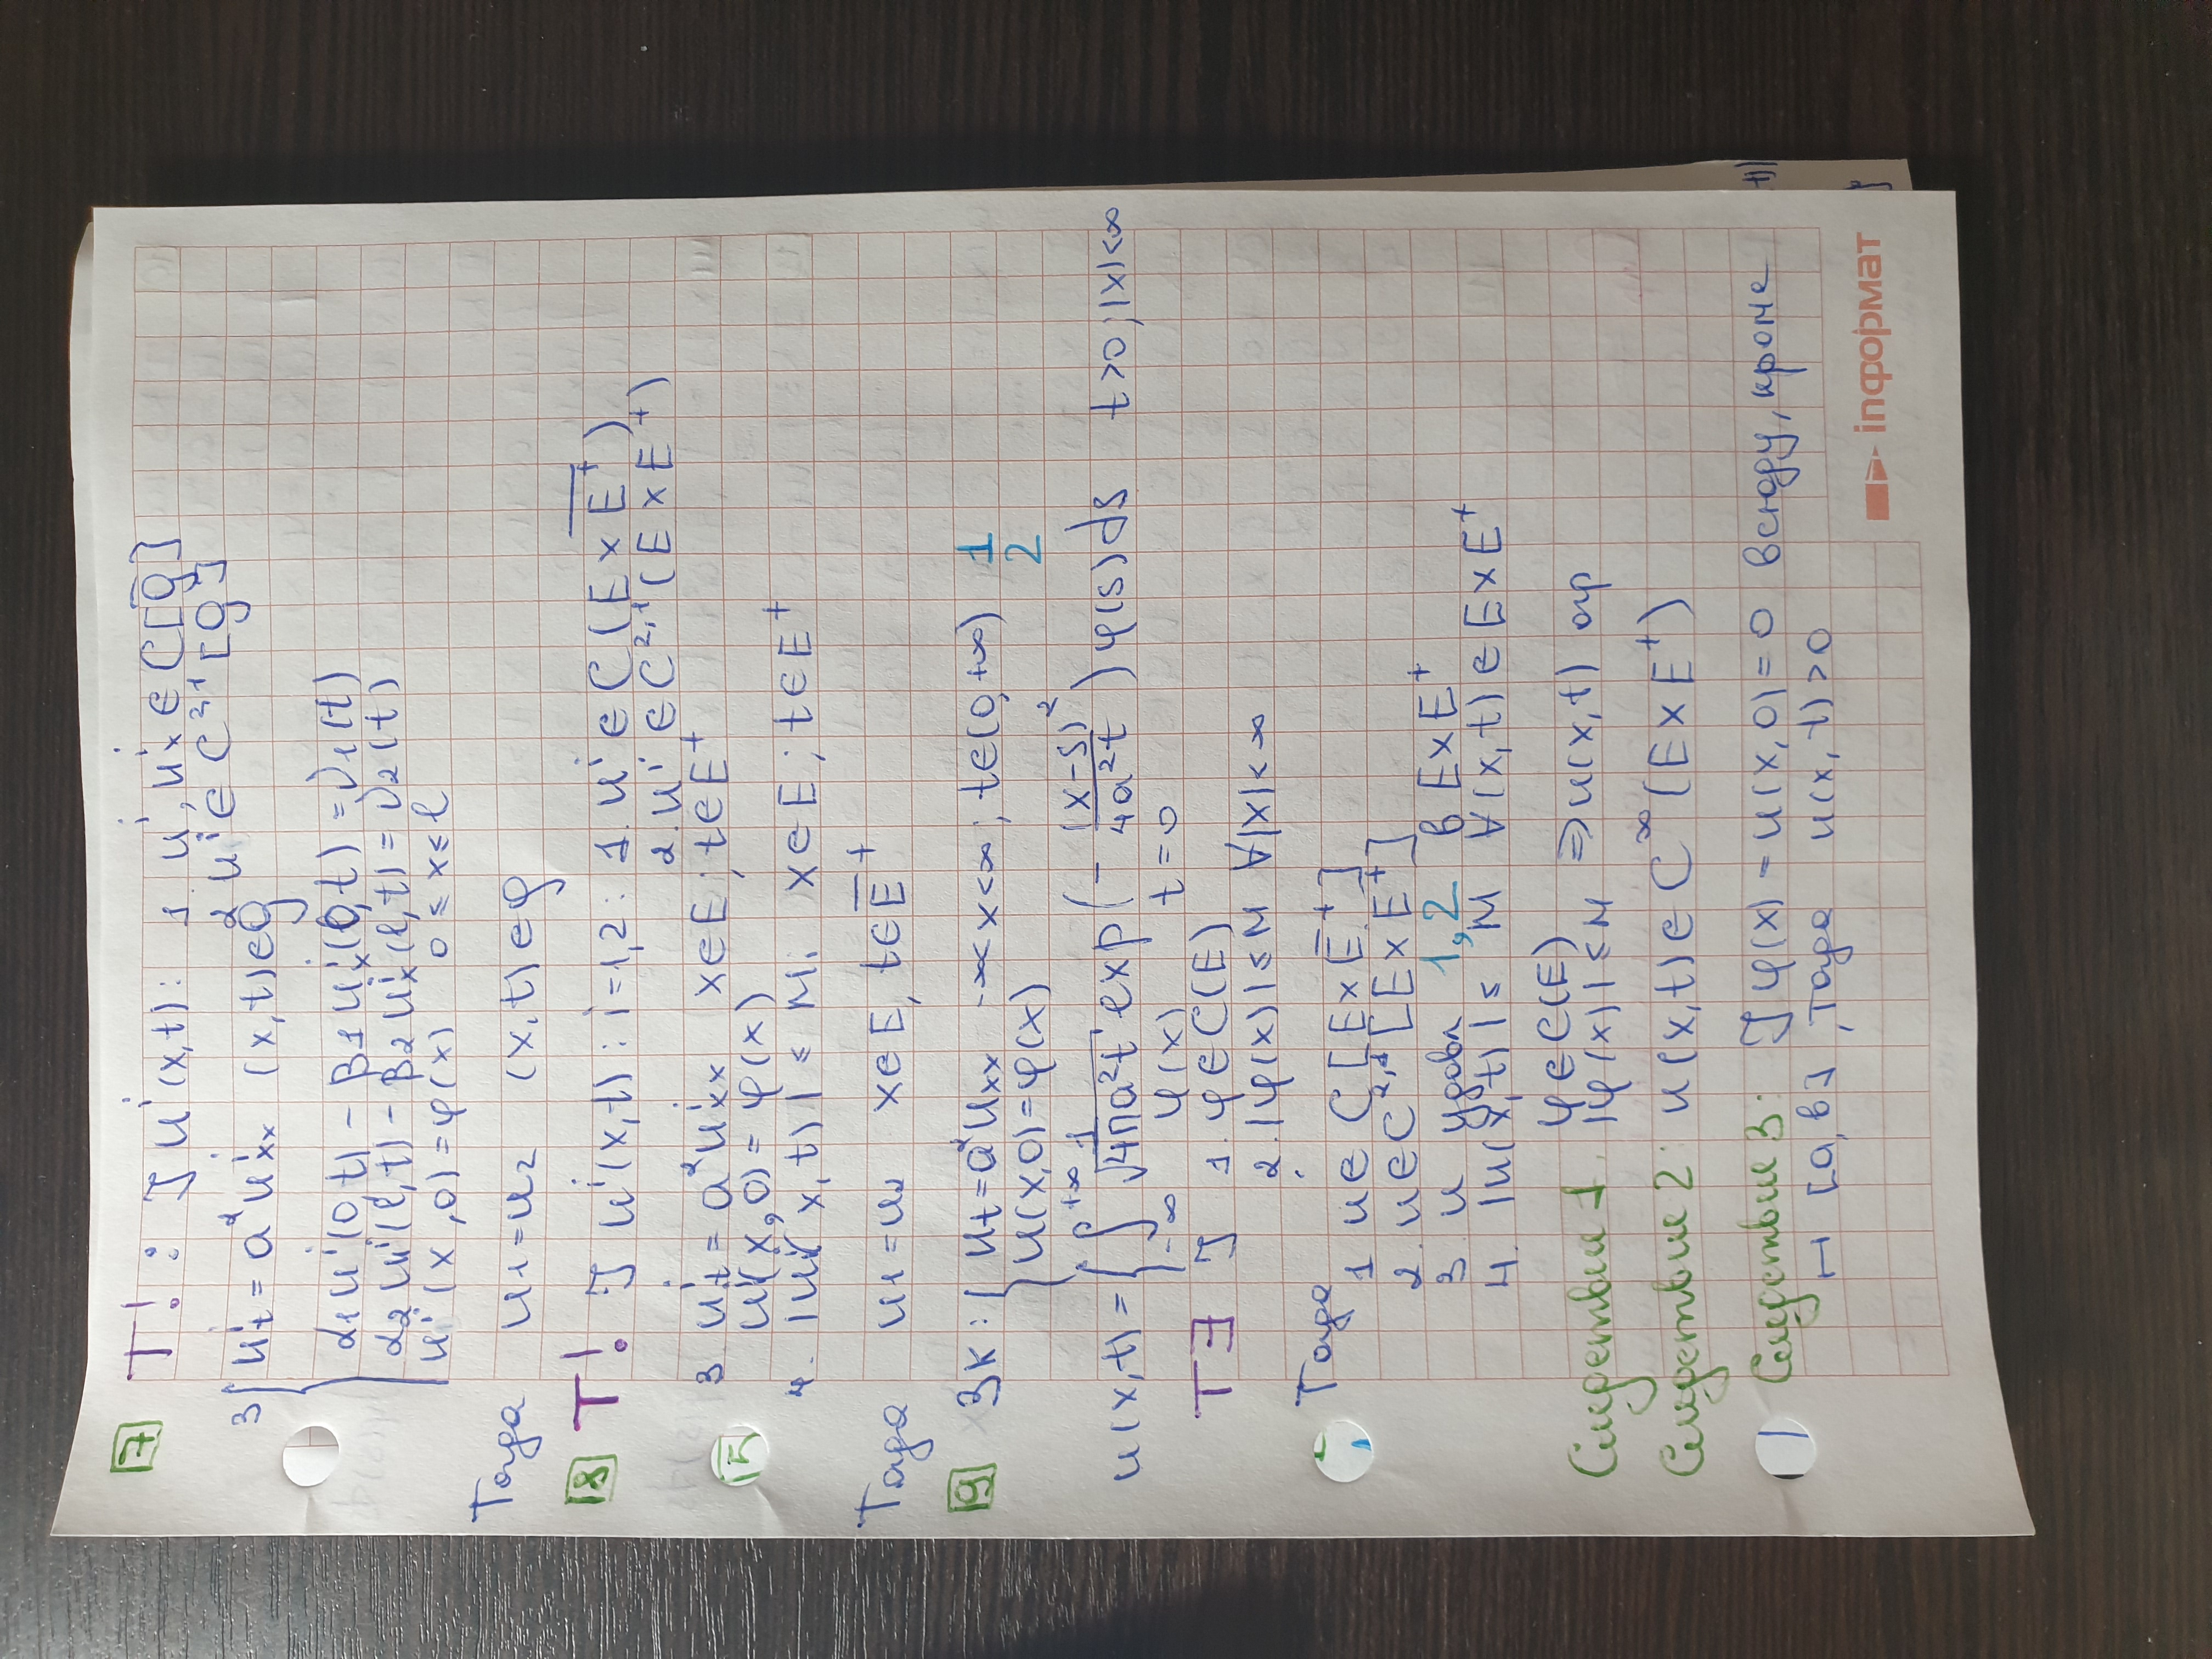 7 T!: ] uⁱ(x,t): 1. uⁱ, uⁱₓ ∈ C[Q̅]
2 uⁱ ∈ C²,¹[Q]
3 { uⁱt = a²uⁱxx (x,t) ∈ Q
α₁uⁱ(0,t) - β₁uⁱx(0,t) = ν₁(t)
α₂uⁱ(l,t) - β₂uⁱx(l,t) = ν₂(t)
uⁱ(x,0) = φ(x) 0 ≤ x ≤ l
Тогда u₁ = u₂ (x,t) ∈ Q
8 T!. ] uⁱ(x,t): i = 1,2: 1. uⁱ ∈ C(E×E̅⁺)
2. uⁱ ∈ C²,¹(E×E⁺)
3. uⁱt = a²uⁱxx x∈E; t∈E⁺
uⁱ(x,0) = φ(x)
4. |uⁱ(x,t)| ≤ Mi x∈E; t∈E⁺
Тогда u₁ = u₂ x∈E, t∈E̅⁺
9 ЗК: { ut = a²uxx -∞<x<∞; t∈(0,+∞) 1
u(x,0) = φ(x) 2
u(x,t) = { ∫₋∞⁺∞ 1/√4πa²t exp(-(x-s)²/4a²t) φ(s)ds t>0, |x|<∞
φ(x) t=0
T∃ ] 1. φ∈C(E)
2. |φ(x)| ≤ M ∀|x|<∞
Тогда
1 u∈C[E×E̅⁺]
2. u∈C²,¹[E×E⁺]
3. u удовл 1,2 в E×E⁺
4. |u(x,t)| ≤ M ∀(x,t)∈E×E⁺
Следствие 1. φ∈C(E)
|φ(x)| ≤ M ⇒ u(x,t) огр
Следствие 2: u(x,t)∈C^∞(E×E⁺)
Следствие 3: ] φ(x) = u(x,0) = 0 всюду, кроме
[a,b], Тогда u(x,t)>0
inформат